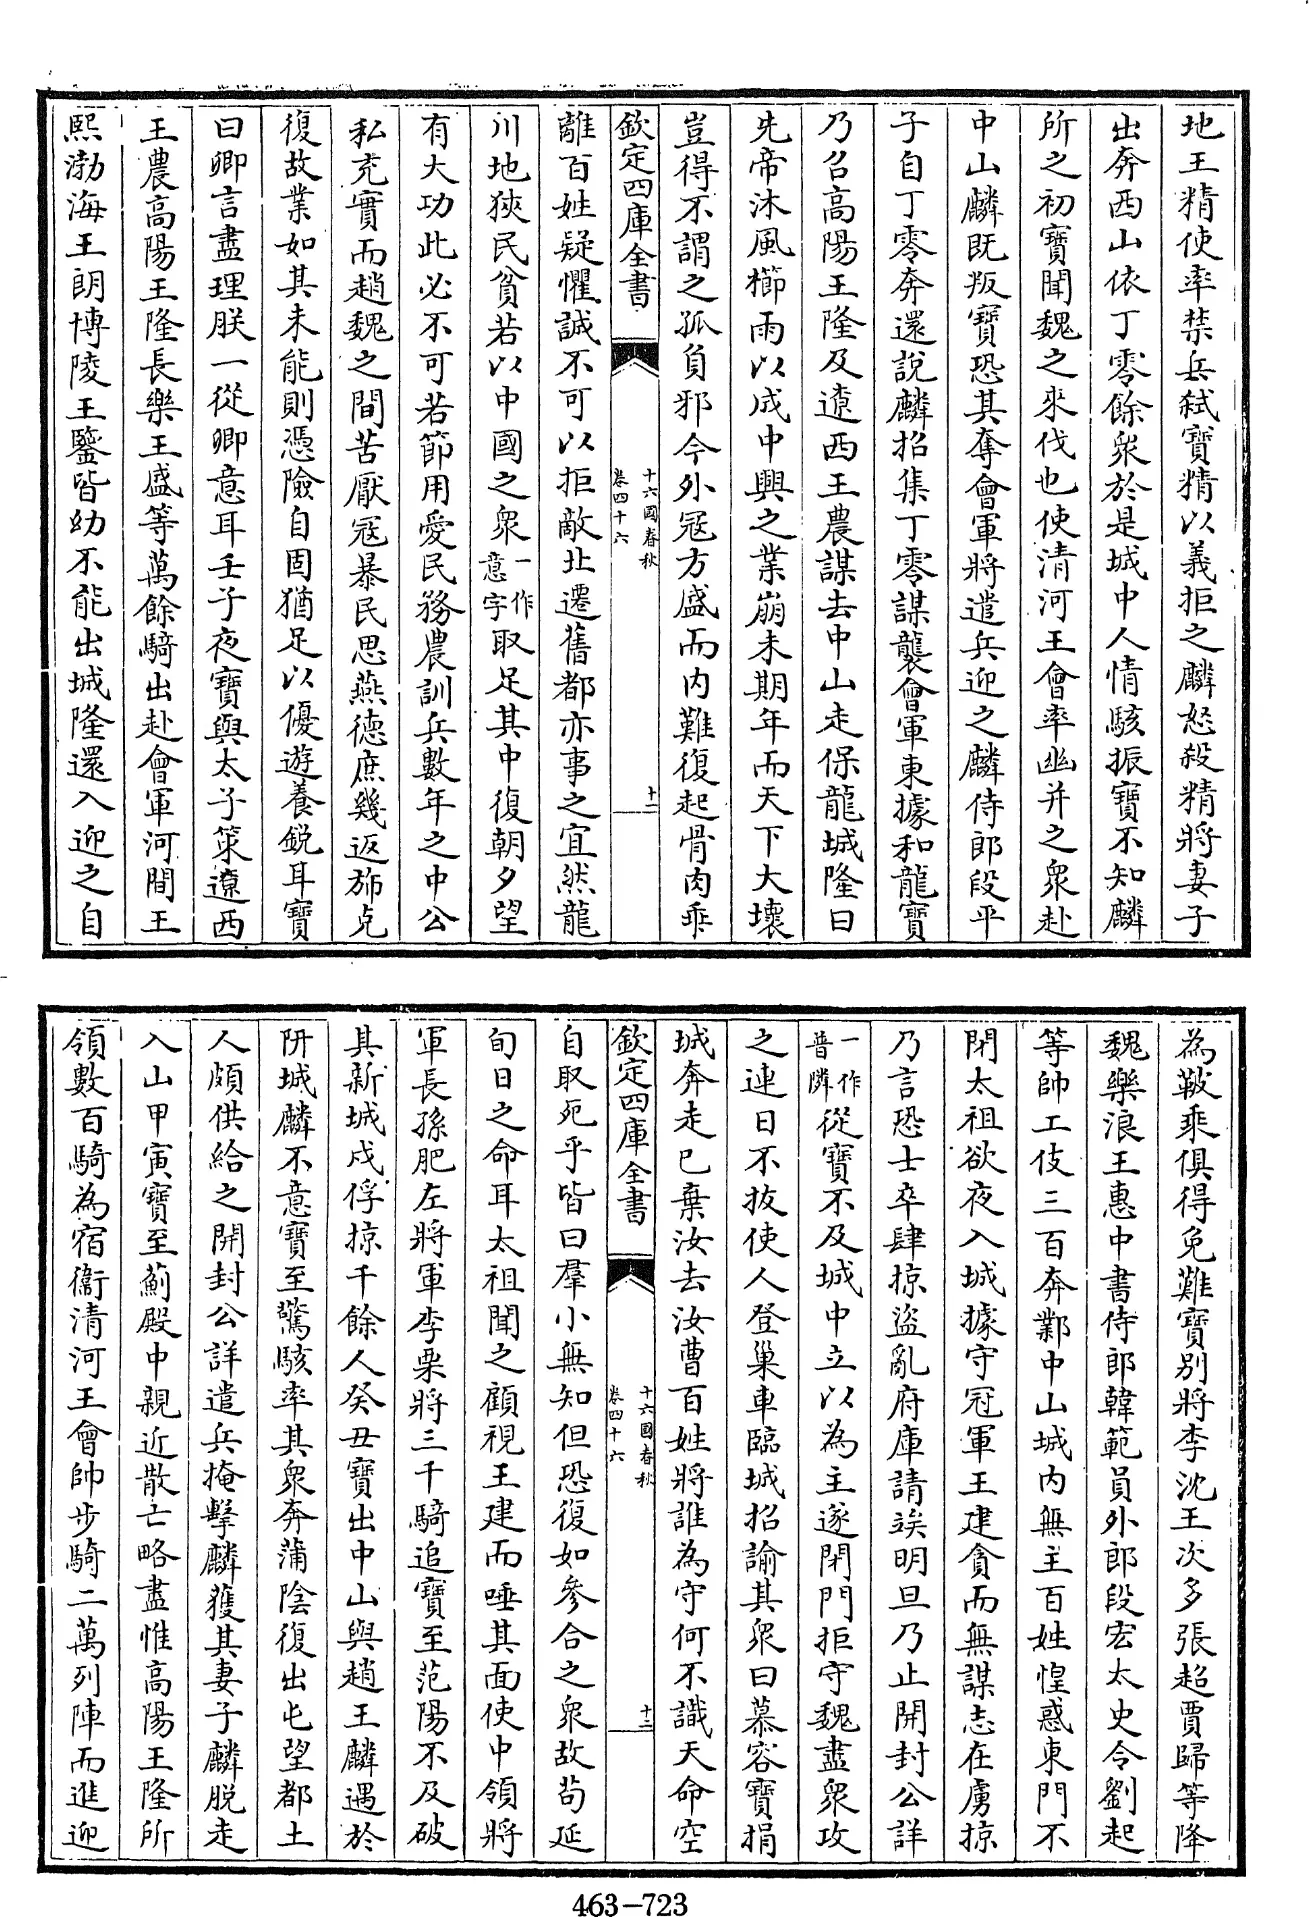 地王精使率禁兵弑寶精以義拒之麟怒殺精將妻子
出奔西山依丁零餘衆於是城中人情駭振寶不知麟
所之初寶聞魏之來伐也使清河王會率幽并之衆赴
中山麟既叛寶恐其奪會軍將遣兵迎之麟侍郎段平
子自丁零奔還說麟招集丁零謀襲會軍東據和龍寶
乃召高陽王隆及遼西王農謀去中山走保龍城隆曰
先帝沐風櫛雨以成中興之業崩未期年而天下大壞
豈得不謂之孤負邪今外冦方盛而内難復起骨肉乖
欽定四庫全書
十六國春秋
卷四十六
十一
離百姓疑懼誠不可以拒敵北遷舊都亦事之宜然龍
川地狹民貧若以中國之衆一作意字取足其中復朝夕望
有大功此必不可若節用愛民務農訓兵數年之中公
私充實而趙魏之間苦厭冦暴民思燕德庶幾返斾克
復故業如其未能則憑險自固猶足以優遊養鋭耳寶
曰卿言盡理朕一從卿意耳壬子夜寶與太子策遼西
王農高陽王隆長樂王盛等萬餘騎出赴會軍河間王
熙渤海王朗博陵王鑒皆幼不能出城隆還入迎之自
為鞁乘俱得免難寶别將李沈王次多張超賈歸等降
魏樂浪王惠中書侍郎韓範員外郎段宏太史令劉起
等帥工伎三百奔鄴中山城内無主百姓惶惑東門不
閉太祖欲夜入城據守冠軍王建貪而無謀志在虜掠
乃言恐士卒肆掠盜亂府庫請竢明旦乃止開封公詳
一作普隣從寶不及城中立以為主遂閉門拒守魏盡衆攻
之連日不拔使人登巢車臨城招諭其衆曰慕容寶捐
城奔走已棄汝去汝曹百姓將誰為守何不識天命空
欽定四庫全書
十六國春秋
卷四十六
十二
自取死乎皆曰羣小無知但恐復如參合之衆故苟延
旬日之命耳太祖聞之顧視王建而唾其面使中領將
軍長孫肥左將軍李栗將三千騎追寶至范陽不及破
其新城戍俘掠千餘人癸丑寶出中山與趙王麟遇於
阱城麟不意寶至驚駭率其衆奔蒲陰復出屯望都土
人頗供給之開封公詳遣兵掩擊麟獲其妻子麟脱走
入山甲寅寶至薊殿中親近散亡略盡惟高陽王隆所
領數百騎為宿衞清河王會帥步騎二萬列陣而進迎
463-723